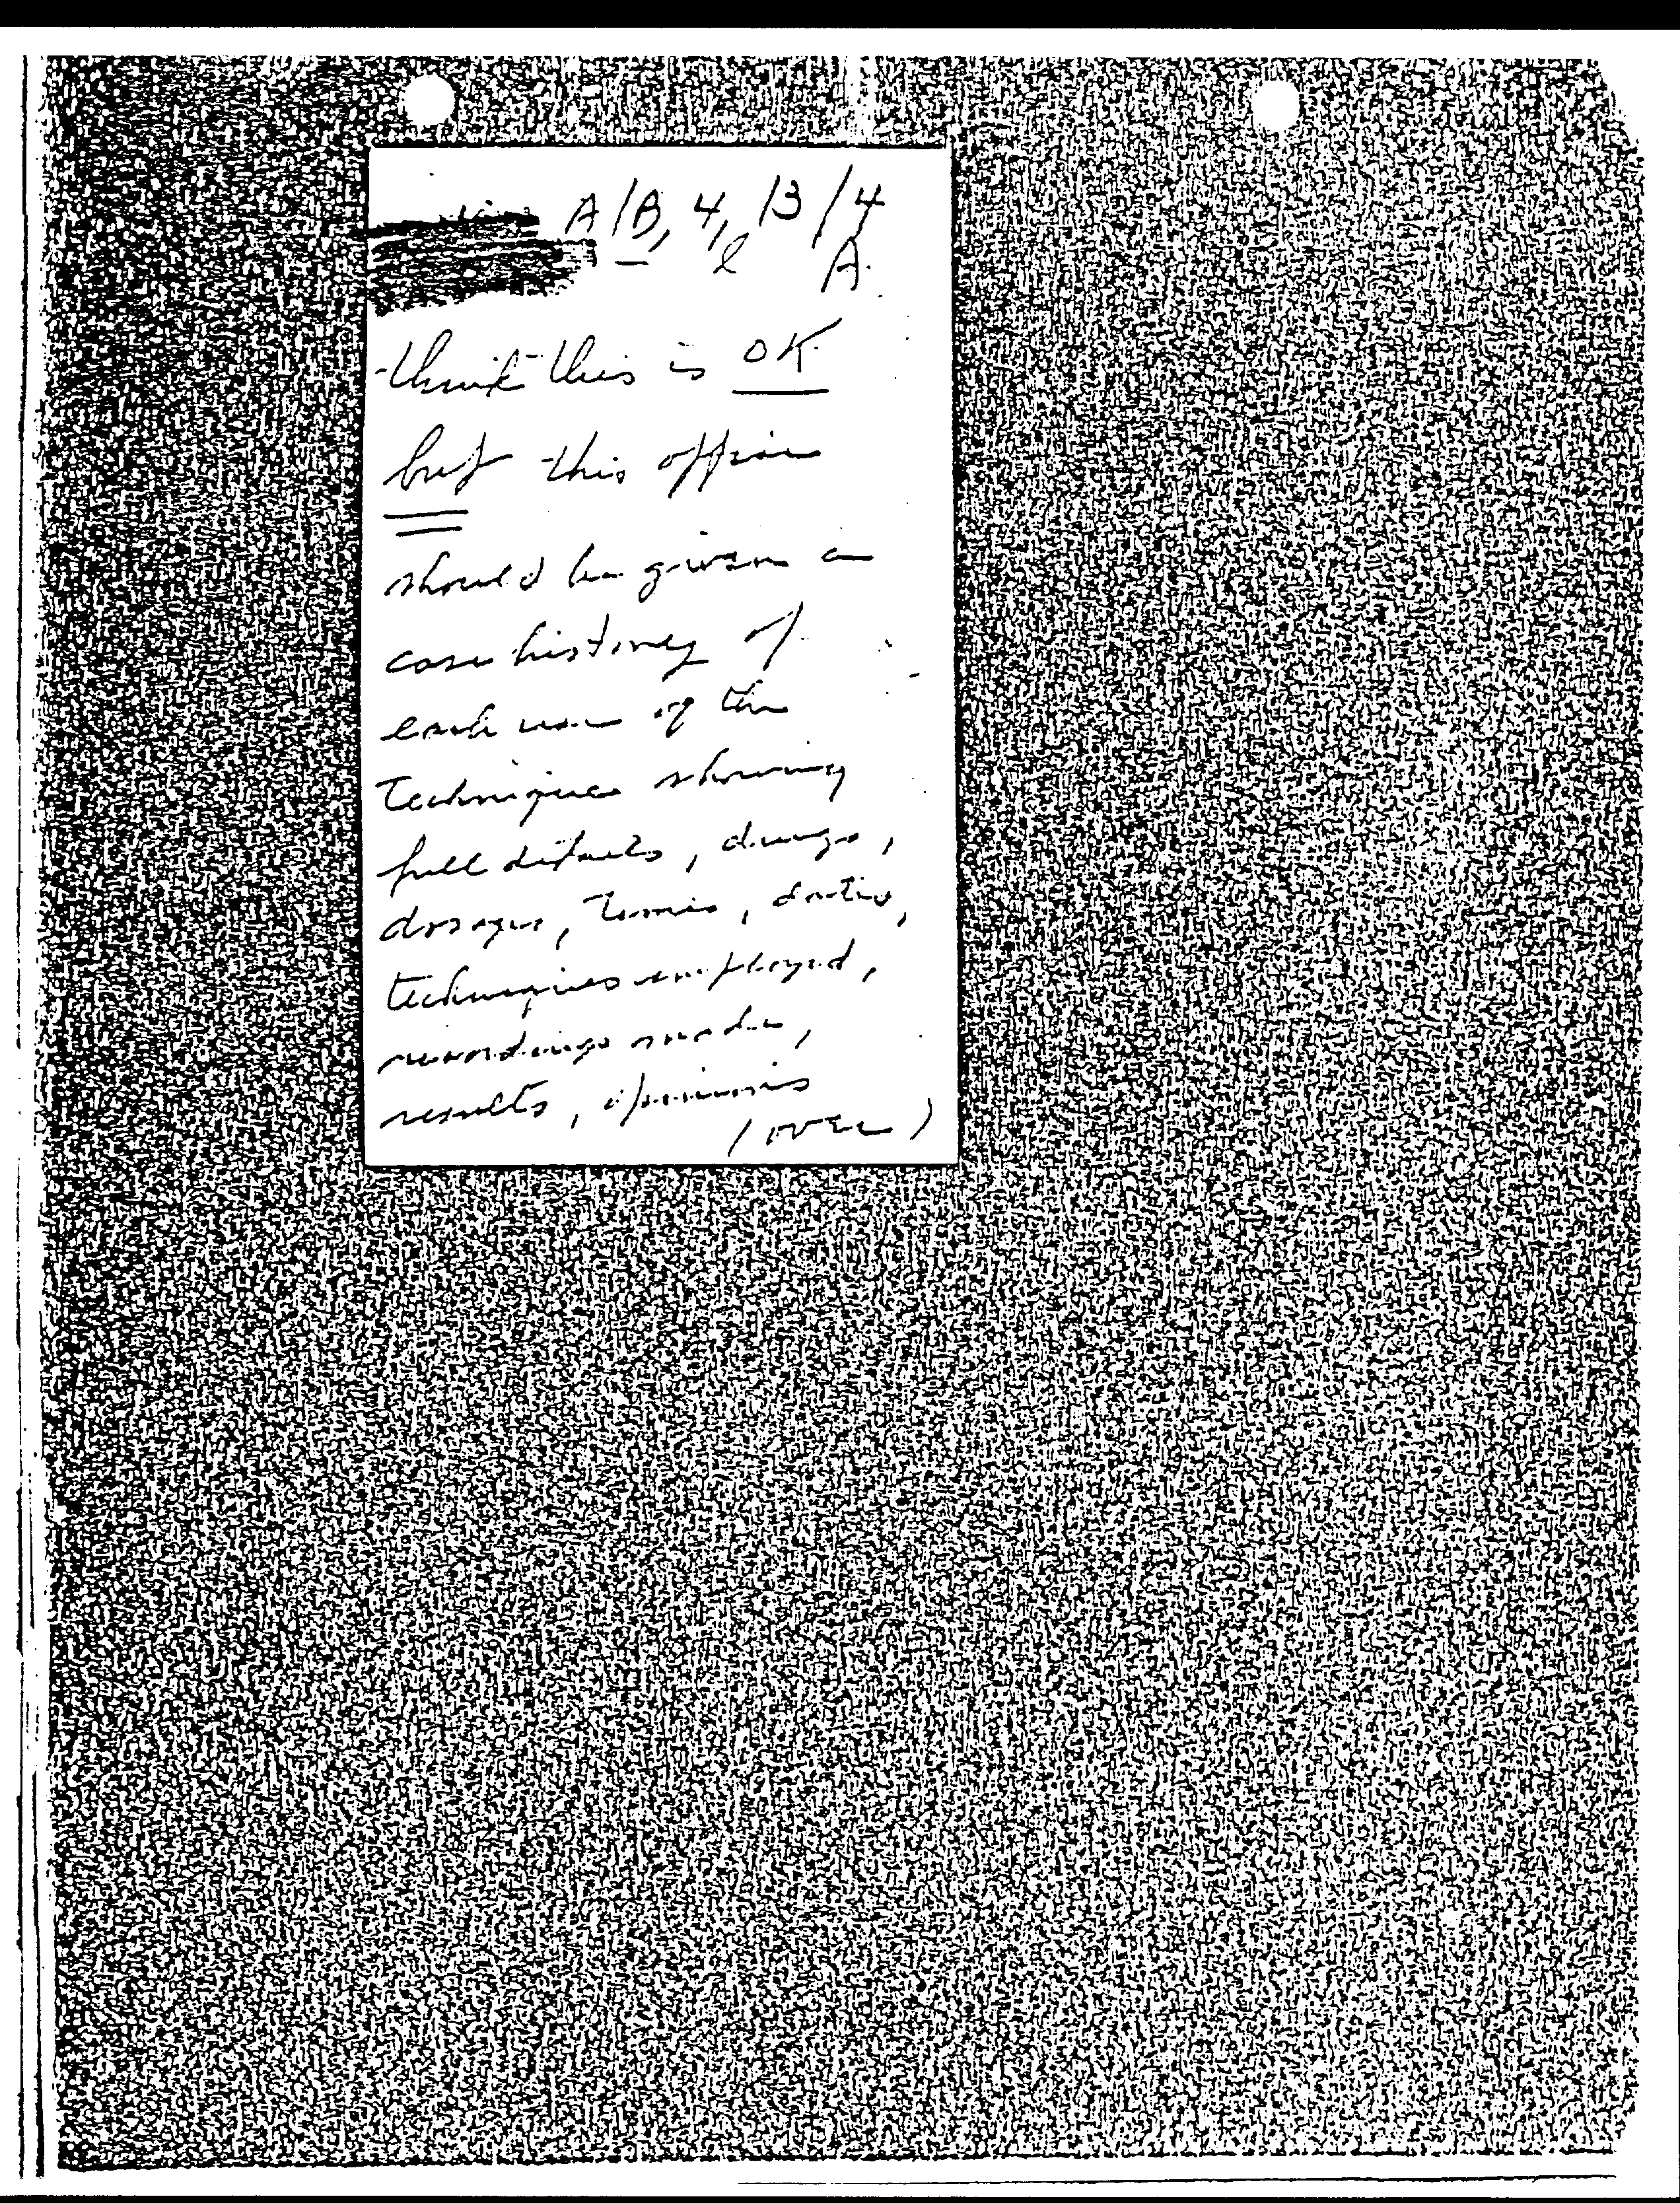 A/B, 4, 13/4
A.
think this is OK
but this office
should be given a
case history of
each use of the
technique showing
full details, drugs,
dosages, times, dates,
techniques employed,
recordings made,
results, opinions
(over)